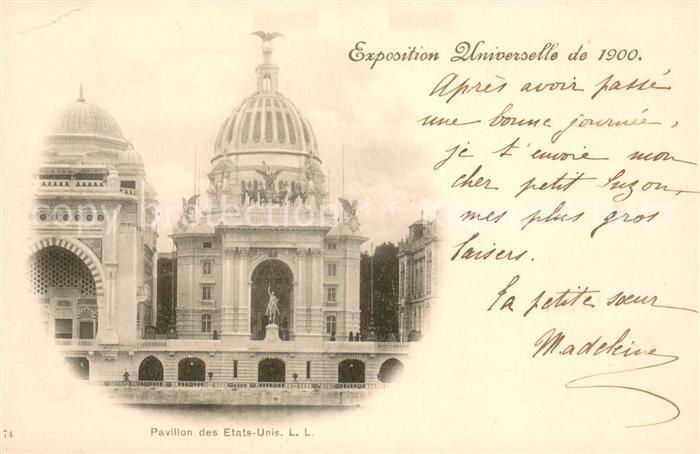 Exposition Universelle de 1900.
Après avoir passé
une bonne journée,
je t'envoie mon
cher petit Suzon,
mes plus gros
baisers.
Ta petite sœur
Madeleine
74
Pavillon des Etats-Unis. L. L.